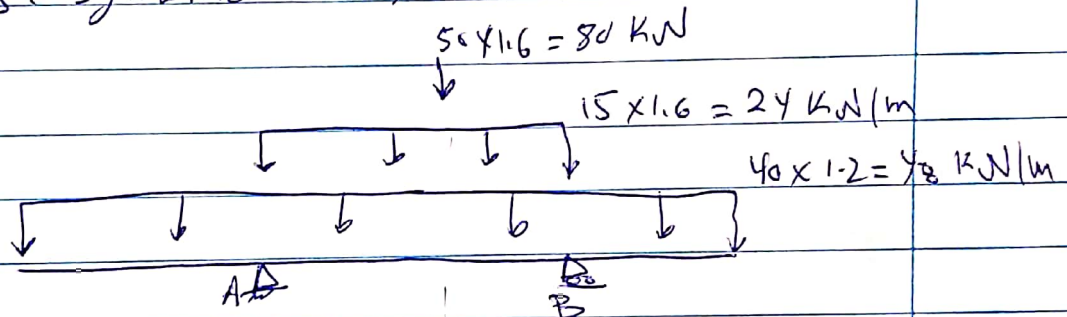 50 X 1.6 = 80 KN
15 X 1.6 = 24 KN/m
40 X 1.2 = 48 KN/m
A
B